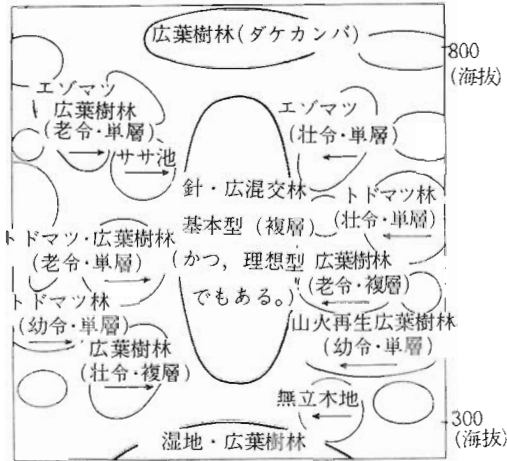 広葉樹林(ダケカンバ)
800
(海抜)
エゾマツ
広葉樹林
(老令・単層)
ササ池
エゾマツ
(壮令・単層)
針・広混交林
基本型(複層)
(かつ,理想型
でもある。)
トドマツ林
(壮令・単層)
トドマツ・広葉樹林
(老令・単層)
広葉樹林
(老令・複層)
トドマツ林
(幼令・単層)
山火再生広葉樹林
(幼令・単層)
広葉樹林
(壮令・複層)
無立木地
300
(海抜)
湿地・広葉樹林